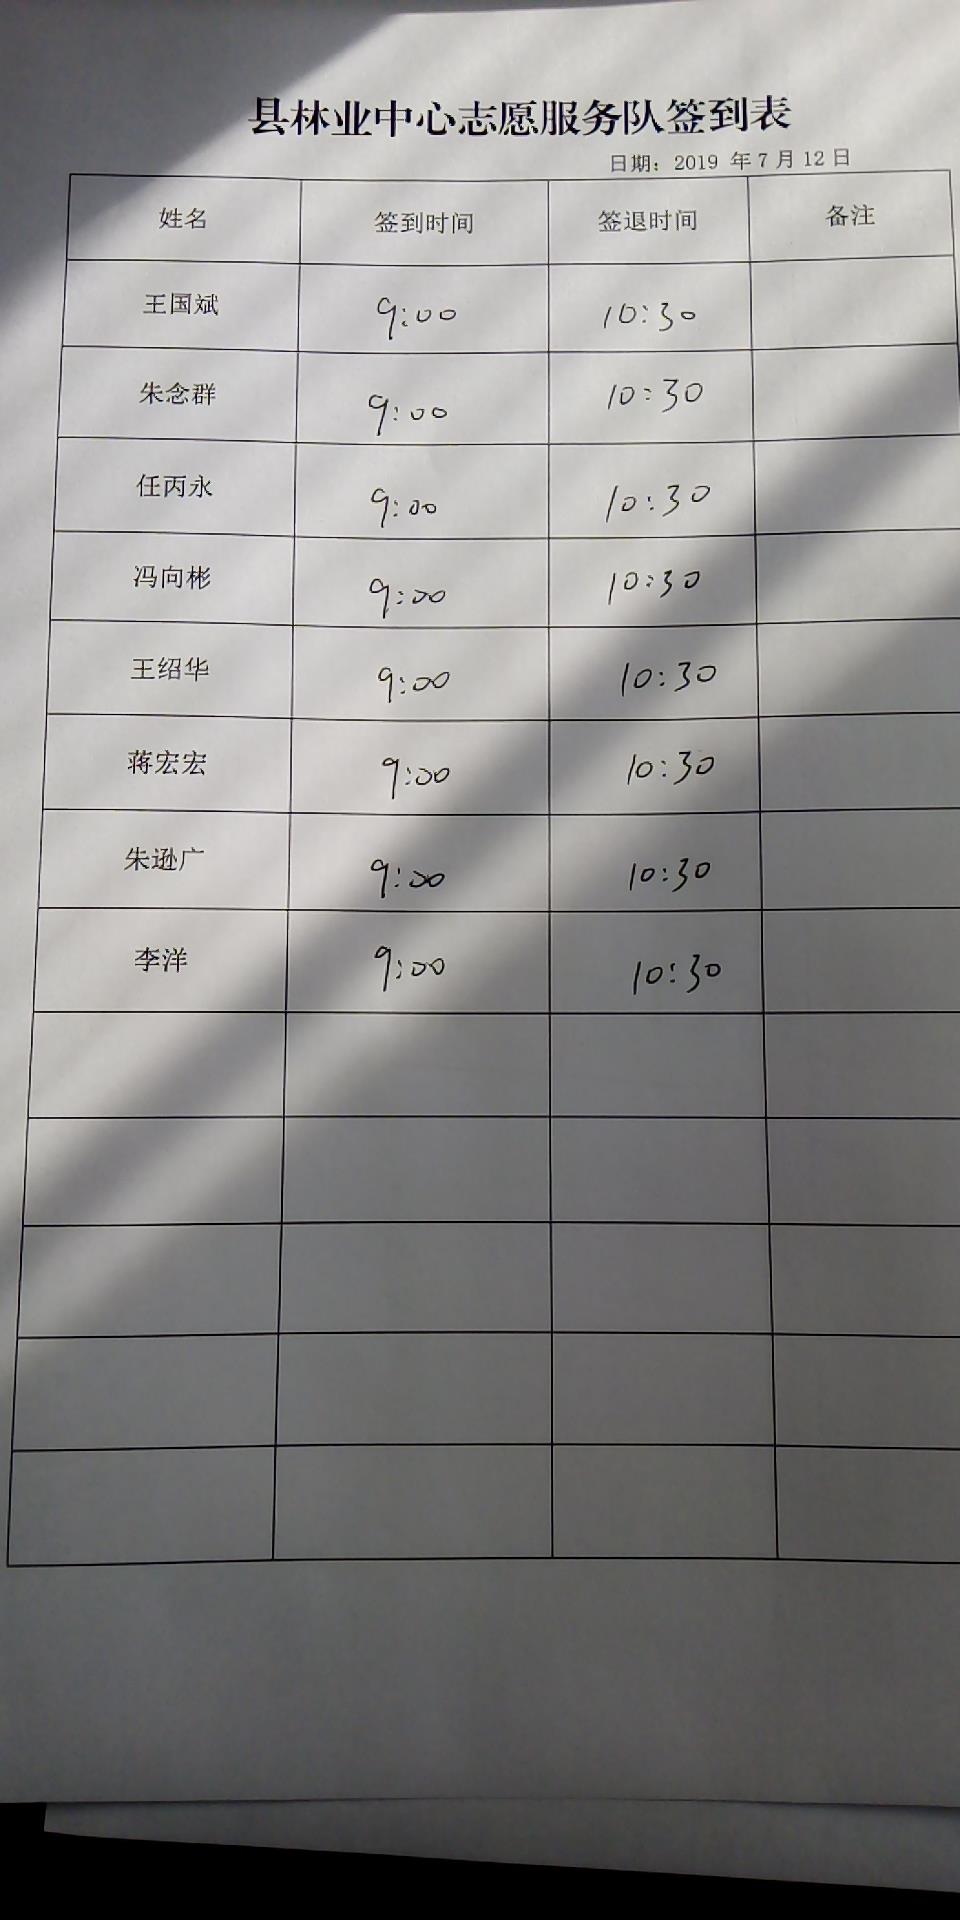 县林业中心志愿服务队签到表
日期：2019 年 7 月 12 日
姓名 签到时间 签退时间 备注
王国斌 9:00 10:30
朱念群 9:00 10:30
任丙永 9:00 10:30
冯向彬 9:00 10:30
王绍华 9:00 10:30
蒋宏宏 9:00 10:30
朱逊广 9:00 10:30
李洋 9:00 10:30